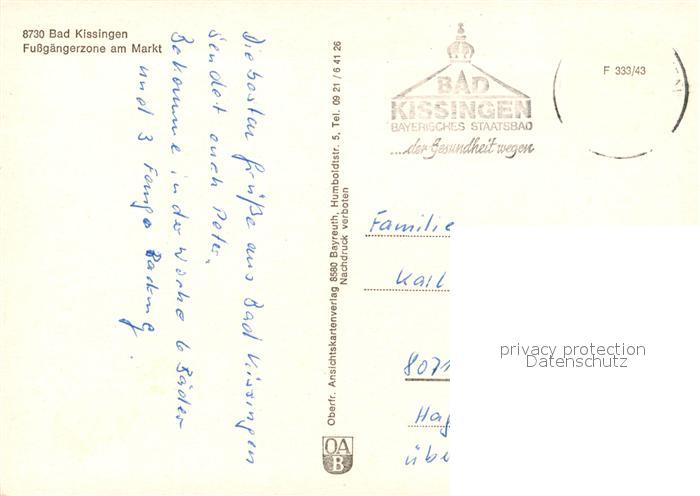 8730 Bad Kissingen
Fußgängerzone am Markt
Die besten Grüße aus Bad Kissingen
sendet euch Peter.
Bekomme in der Woche 6 Bäder
und 3 Fango
Oberfr. Ansichtskartenverlag 8580 Bayreuth, Humboldtstr. 5, Tel. 09 21 / 6 41 26
Nachdruck verboten
OA
B
BAD
KISSINGEN
BAYERISCHES STAATSBAD
...der Gesundheit wegen
F 333/43
Familie
Karl
8071
Hag
übe
privacy protection
Datenschutz